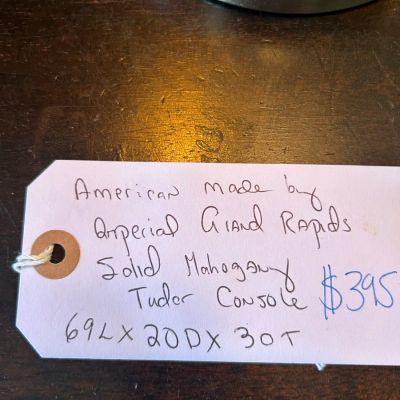 American made by
Imperial Grand Rapids
Solid Mahogany
Tudor Console $395
69L X 20D X 30T